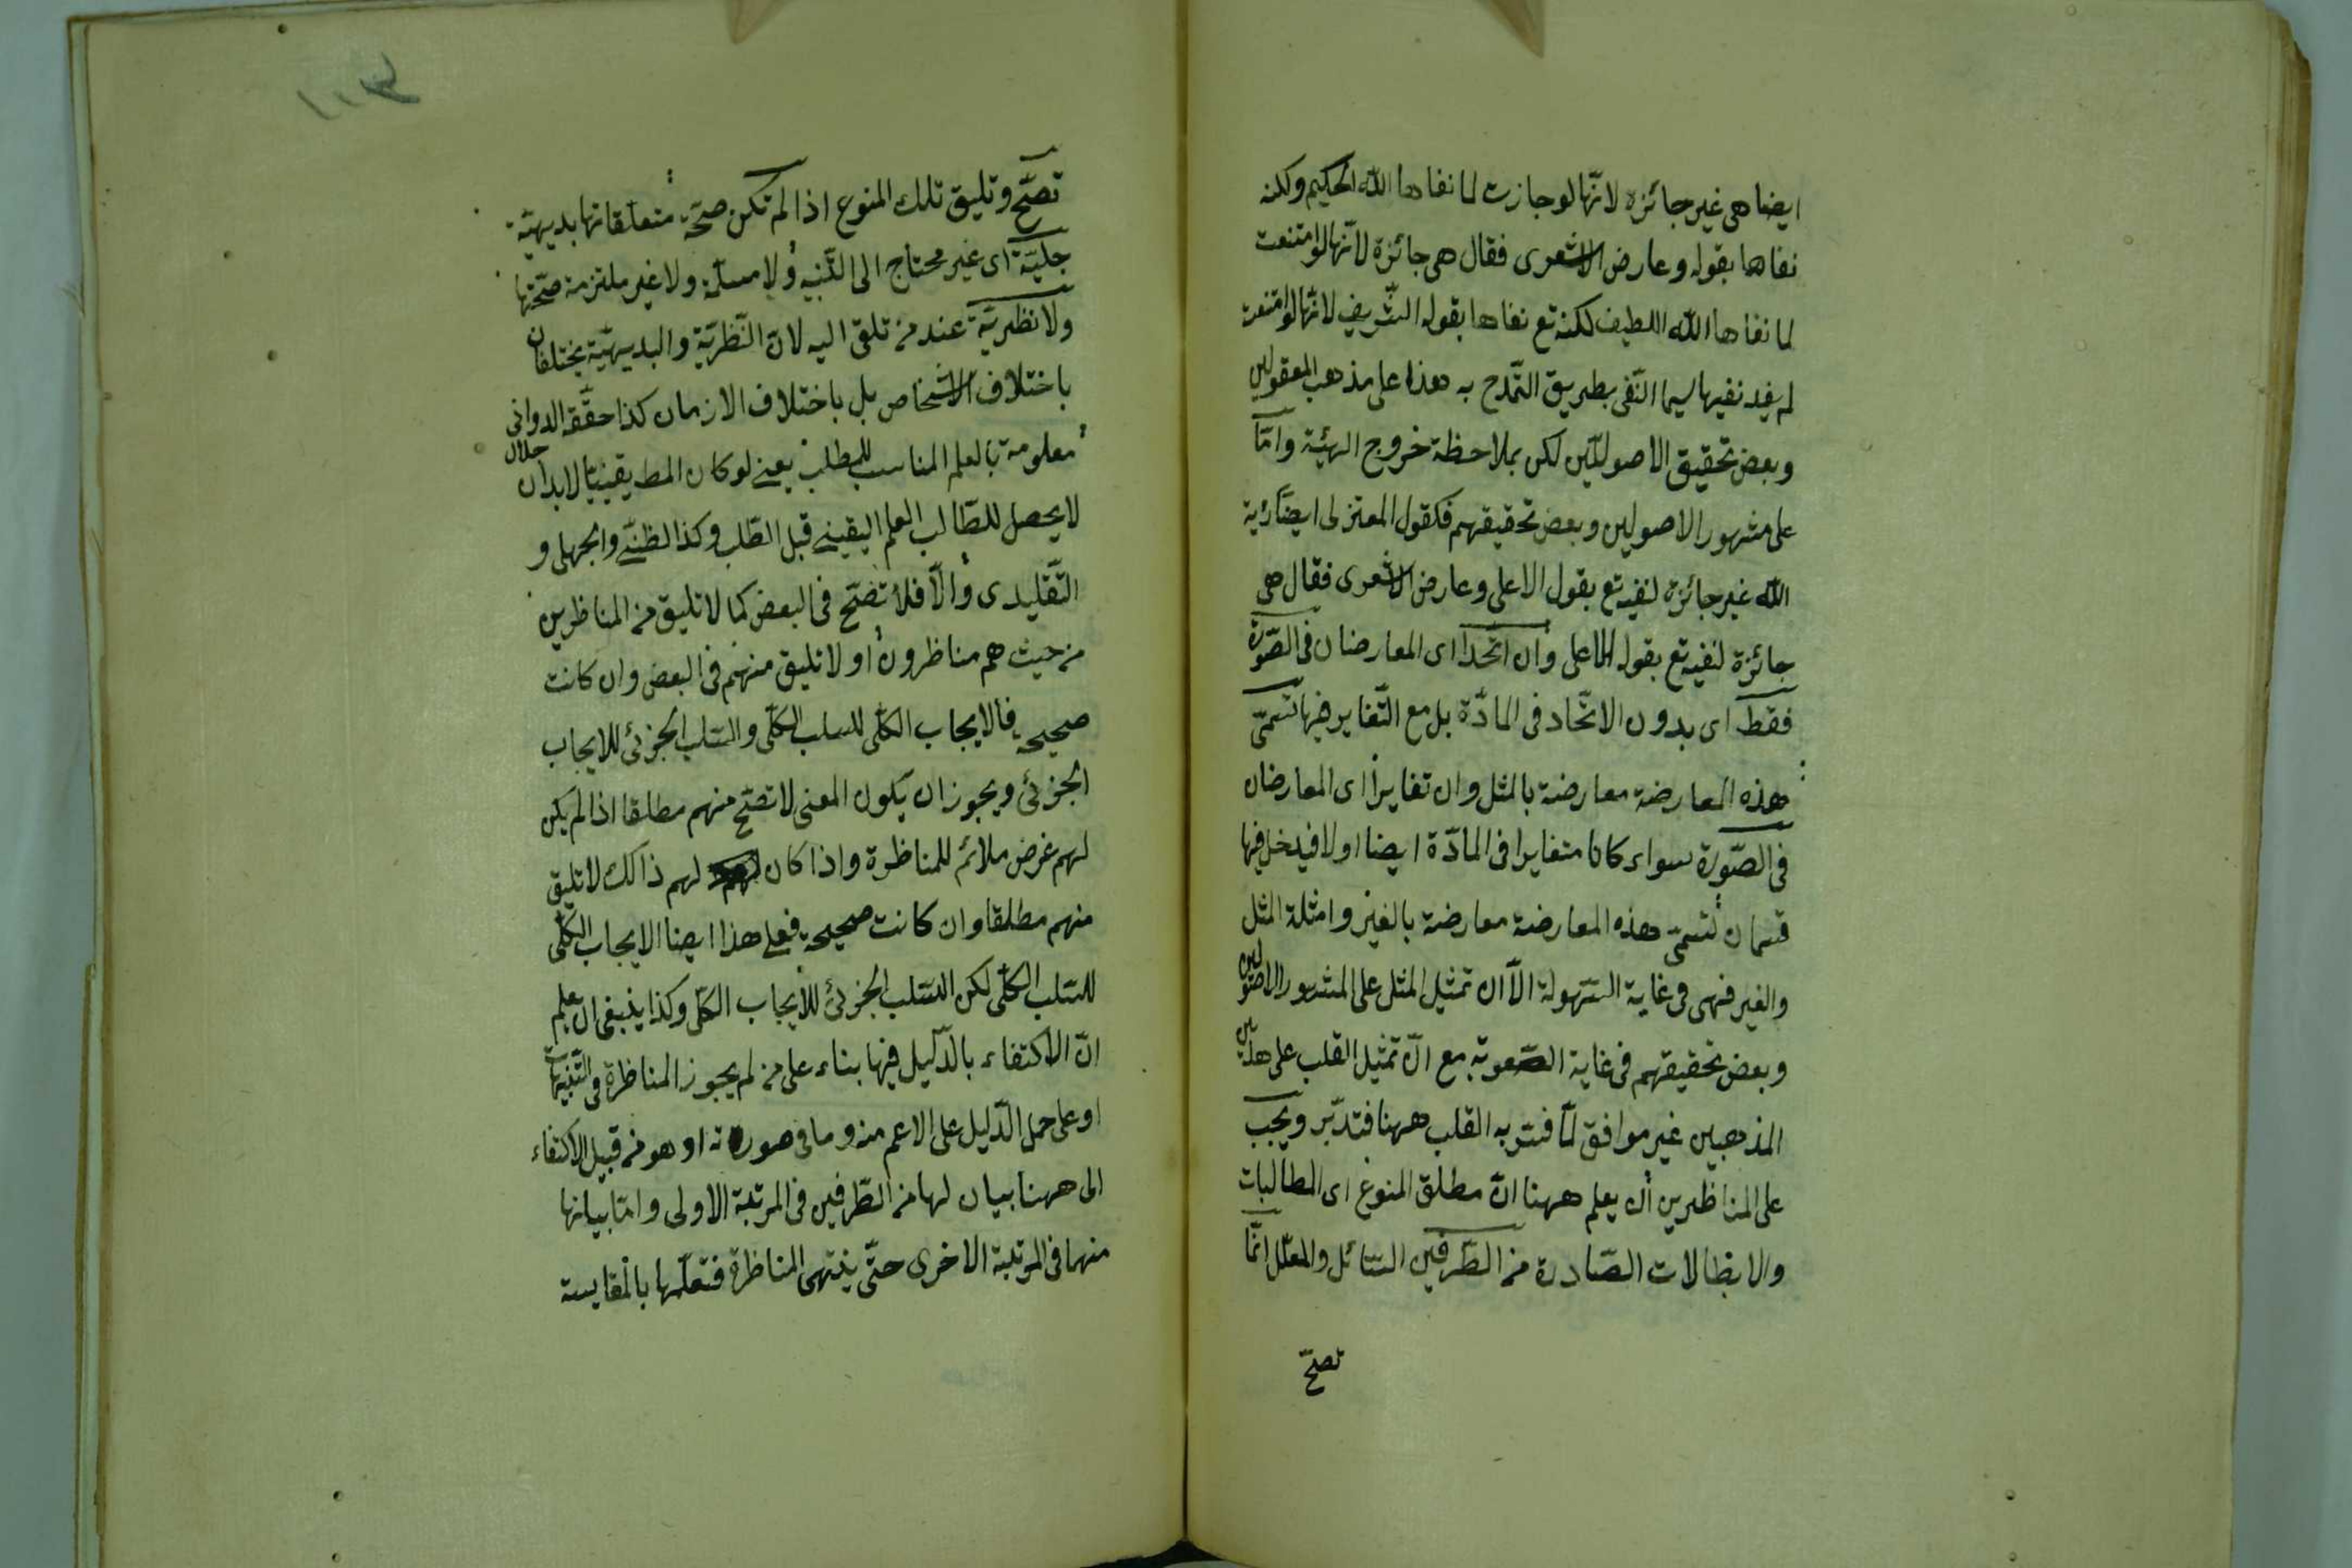 ايضا هى غير جائزة لانّها لو جازت لما نفاها اللّه الحكيم ولكنه
نفاها بقوله وعارض الاشعرى فقال هى جائزة لانّها لو امتنعت
لما نفاها اللّه اللطيف لكنه تع نفاها بقوله الشّريف لانّها لو امتنعت
لم يفد نفيها سيما النّفى بطريق التّمدح به هذا على مذهب المعقوليين
وبعض تحقيق الاصوليّين لكن بملاحظة خروج الهيئة وامّا
على مشهور الاصوليين وبعض تحقيقهم فكقول المعتزلى ايضا رئية
اللّه غير جائزة لنفيه تع بقوله الاعلى وعارض الاشعرى فقال هى
جائزة لنفيه تع بقوله الاعلى وان اتّحدا اى المعارضان فى الصّورة
فقط اى بدون الاتّحاد فى المادّة بل مع التّغاير فيها تسمّى
هذه المعارضة معارضة بالمثل وان تغايرا اى المعارضان
فى الصّورة سواء كانا متغايرا فى المادّة ايضا اولا فيدخل فيها
قسمان تسمّى هذه المعارضة معارضة بالغير وامثلة المثل
والغير فهى فى غاية السّهولة الّا ان تمثيل المثل على المشهور الاصوليين
وبعض تحقيقهم فى غاية الصّعوبة مع انّ تمثيل القلب على هذين
المذهبين غير موافق لما فسّر به القلب ههنا فتدبّر ويجب
على المناظرين أن يعلم ههنا انّ مطلق المنوع اى المطالبات
والابطالات الصّادرة من الطّرفين السّائل والمعلّل انّما
تصحّ
١٠٣
تصحّ وتليق تلك المنوع اذا لم تكن صحّة متعلّقاتها بديهيّة
جليّة اى غير محتاج الى التّنبيه ولا مسلّمة ولا غير ملتزمة صحّتها
ولا نظريّة عند من تلقى اليه لانّ النّظريّة والبديهيّة يختلفان
باختلاف الاشخاص بل باختلاف الازمان كذا حقّقه الدوانى
جلال
معلومة بالعلم المناسب للمطلب يعنى لو كان المط يقينيّا لابد ان
لا يحصل للطّالب العلم اليقينى قبل الطّلب وكذا الظنّى والجهلى و
التّقليدى والّا فلا تصّح فى البعض كما لا تليق من المناظرين
من حيث هم مناظرون او لا تليق منهم فى البعض وان كانت
صحيحة فالايجاب الكلّى للسلب الكلّى والسّلب الجزئى للايجاب
الجزئى ويجوز ان يكون المعنى لا تصّح منهم مطلقا اذا لم يكن
لهم غرض ملائم للمناظرة واذا كان لهم ذالك لا تليق
منهم مطلقا وان كانت صحيحة فعلى هذا ايضا الايجاب الكلّى
للسّلب الكلّى لكن السّلب الجزئى للايجاب الكلّى وكذا ينبغى ان يعلم
انّ الاكتفاء بالدّليل فيها بناء على من لم يجوز المناظرة فى التّنبيهات
او على حمل الدّليل على الاعم منه وما فى صورته او هو من قبيل الاكتفاء
الى ههنا بيان لها من الطّرفين فى المرتبة الاولى وامّا بيانها
منهما فى المرتبة الاخرى حتّى ينتهى المناظرة فتعلّمها بالمقايسة